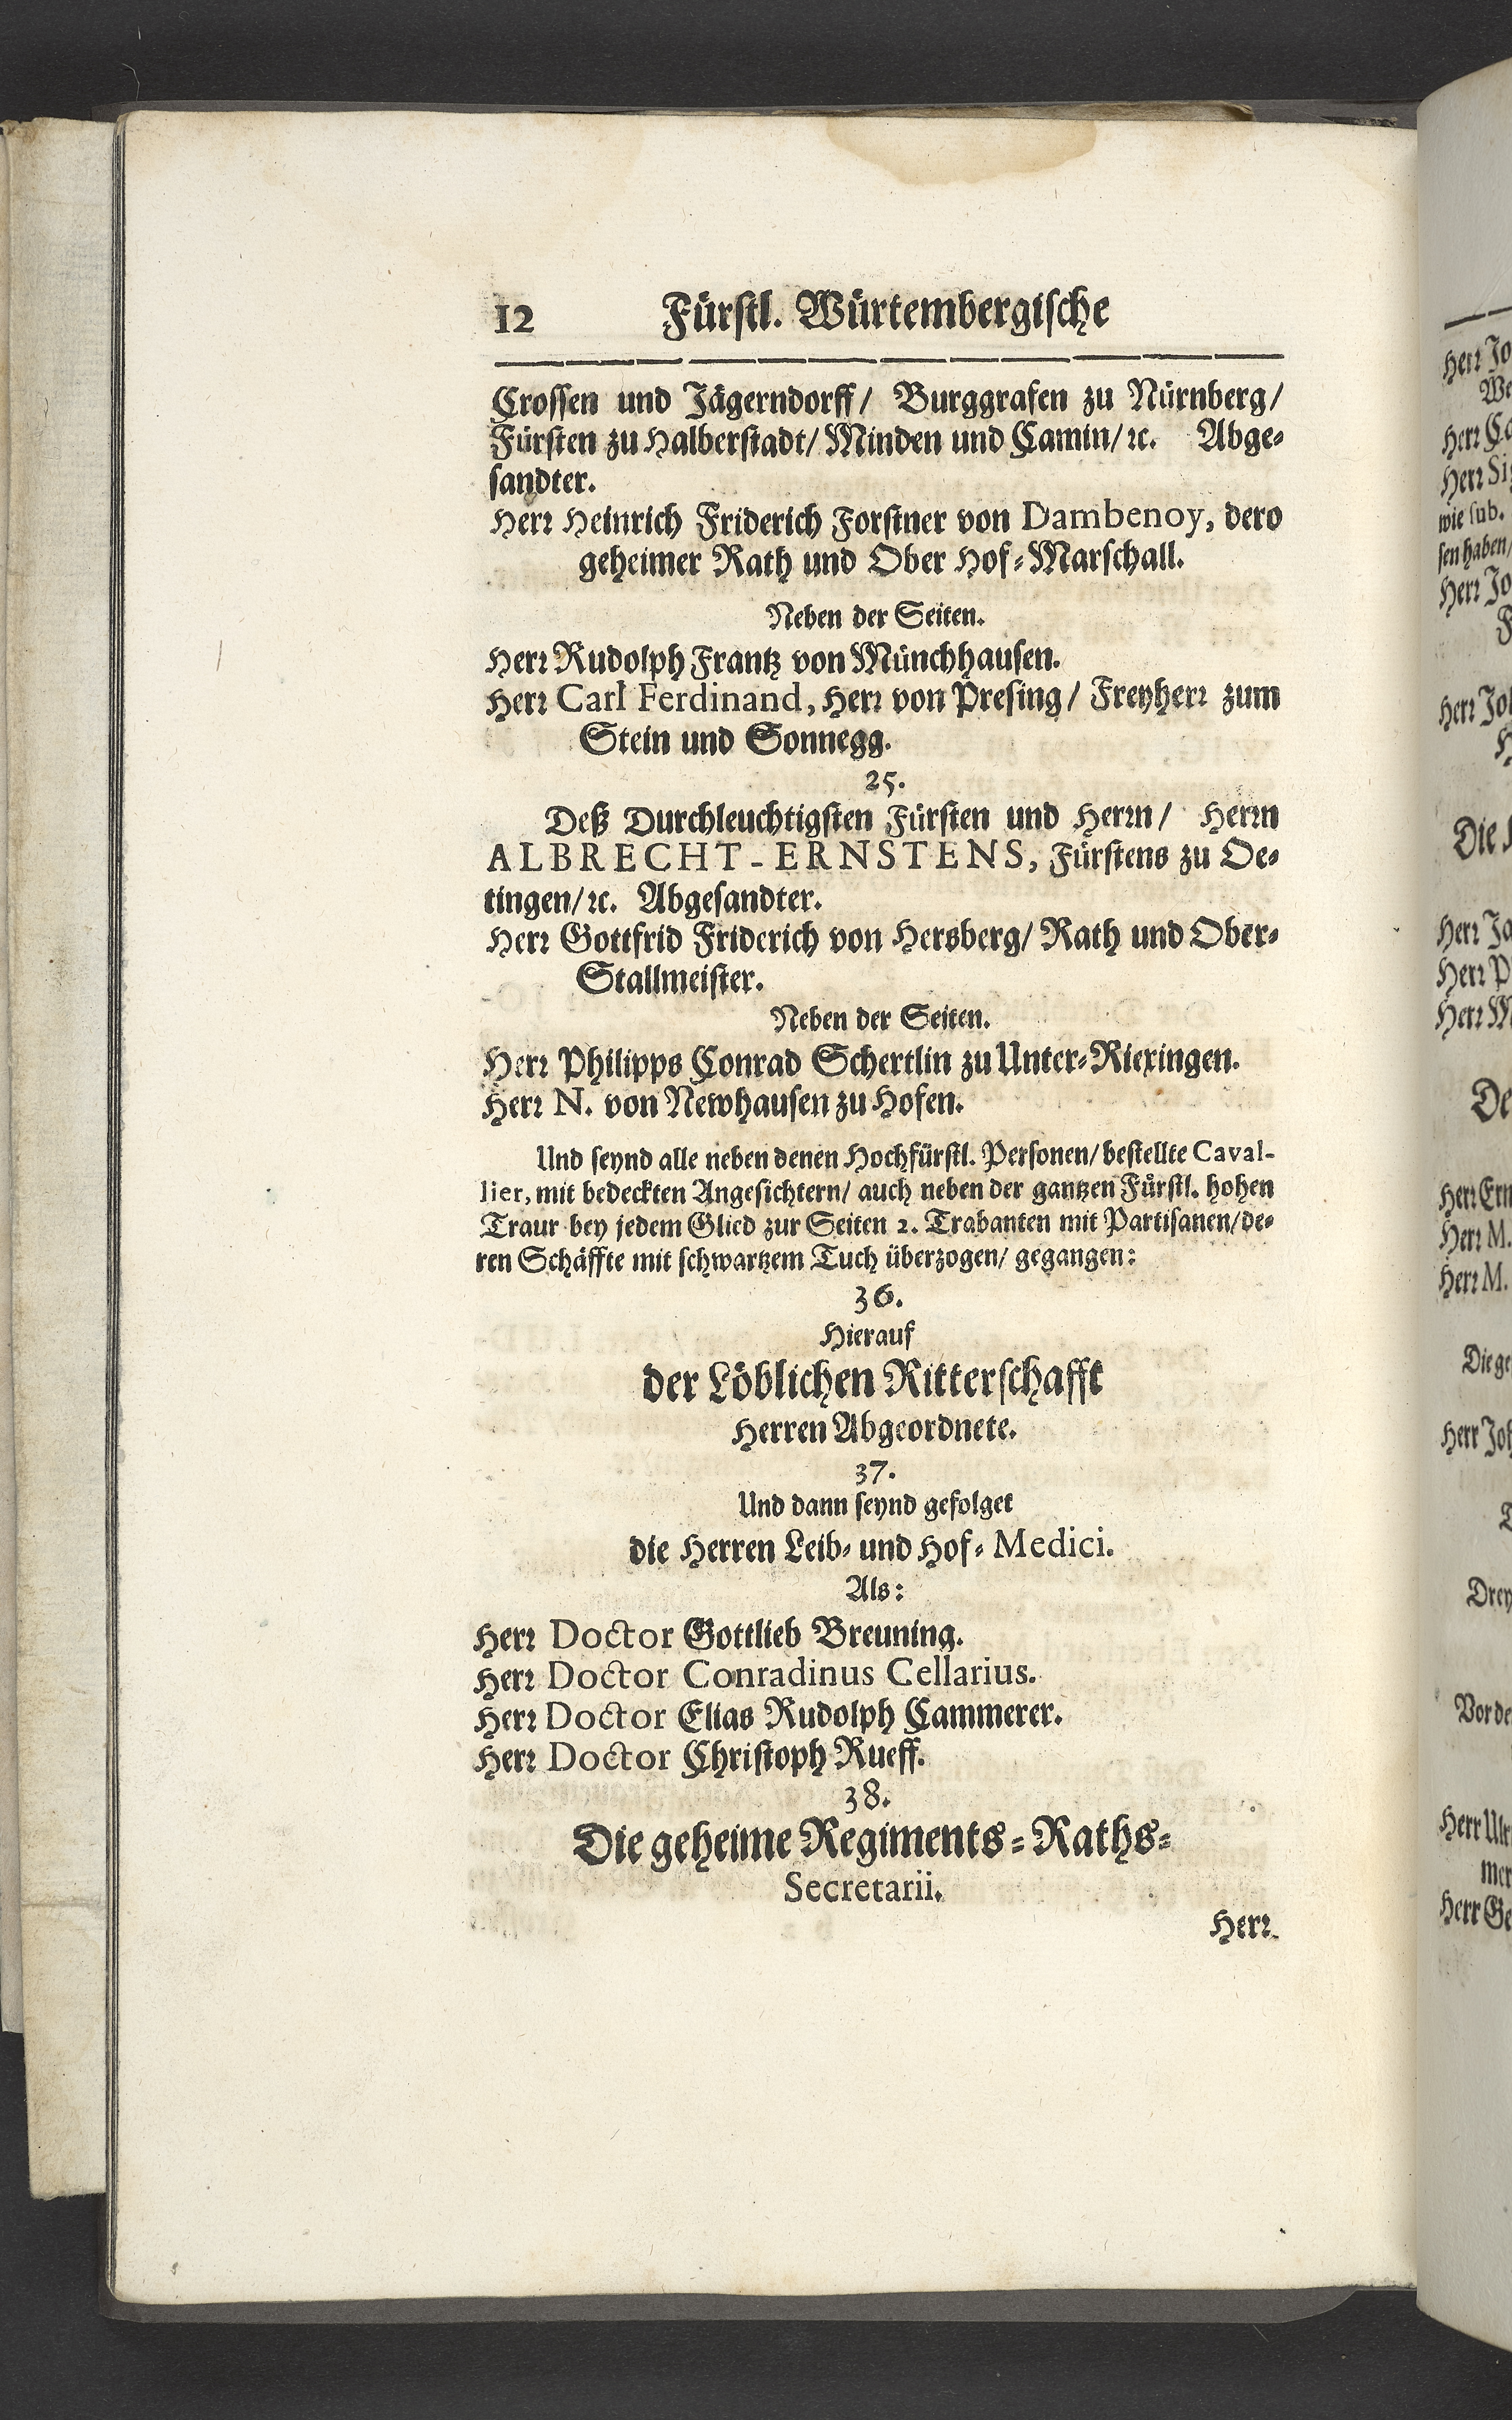 12 Fürstl. Würtembergische
Crossen und Jägerndorff/ Burggrafen zu Nürnberg/
Fürsten zu Halberstadt/ Minden und Camin/ ꝛc. Abge-
sandter.
Herꝛ Heinrich Friderich Forstner von Dambenoy, dero
geheimer Rath und Ober Hof-Marschall.
Neben der Seiten.
Herꝛ Rudolph Frantz von Münchhausen.
Herꝛ Carl Ferdinand, Herꝛ von Presing/ Freyherꝛ zum
Stein und Sonnegg.
25.
Deß Durchleuchtigsten Fürsten und Herꝛn/ Herꝛn
ALBRECHT-ERNSTENS, Fürstens zu Oe-
tingen/ ꝛc. Abgesandter.
Herꝛ Gottfrid Friderich von Hersberg/ Rath und Ober-
Stallmeister.
Neben der Seiten.
Herꝛ Philipps Conrad Schertlin zu Unter-Riexingen.
Herꝛ N. von Newhausen zu Hofen.
Und seynd alle neben denen Hochfürstl. Personen/ bestellte Caval-
lier, mit bedeckten Angesichtern/ auch neben der gantzen Fürstl. hohen
Traur bey jedem Glied zur Seiten 2. Trabanten mit Partisanen/ de-
ren Schäffte mit schwartzem Tuch überzogen/ gegangen:
36.
Hierauf
der Löblichen Ritterschafft
Herren Abgeordnete.
37.
Und dann seynd gefolget
die Herren Leib- und Hof-Medici.
Als:
Herꝛ Doctor Gottlieb Breuning.
Herꝛ Doctor Conradinus Cellarius.
Herꝛ Doctor Elias Rudolph Cammerer.
Herꝛ Doctor Christoph Rueff.
38.
Die geheime Regiments-Raths-
Secretarii.
Herꝛ